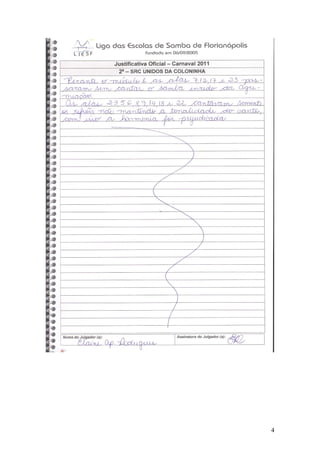 Liga das Escolas de Samba de Florianópolis
LIESF
Fundada em
Justificativa Oficial – Carnaval 2011
2º – SRC UNIDOS DA COLONINHA
Perante o módulo 1 as alas 7,12,17 e 23 pas-
saram sem cantar o samba enredo da agre-
miação.
As alas 2,3,5,6, 8,9,14,18 e 22 cantaram somente
o refrão não mantendo a tonalidade do canto,
com isso a harmonia foi prejudicada.
Nome do Julgador (a):
Assinatura do Julgador (a):
Elaine Ap Rodrigues
4